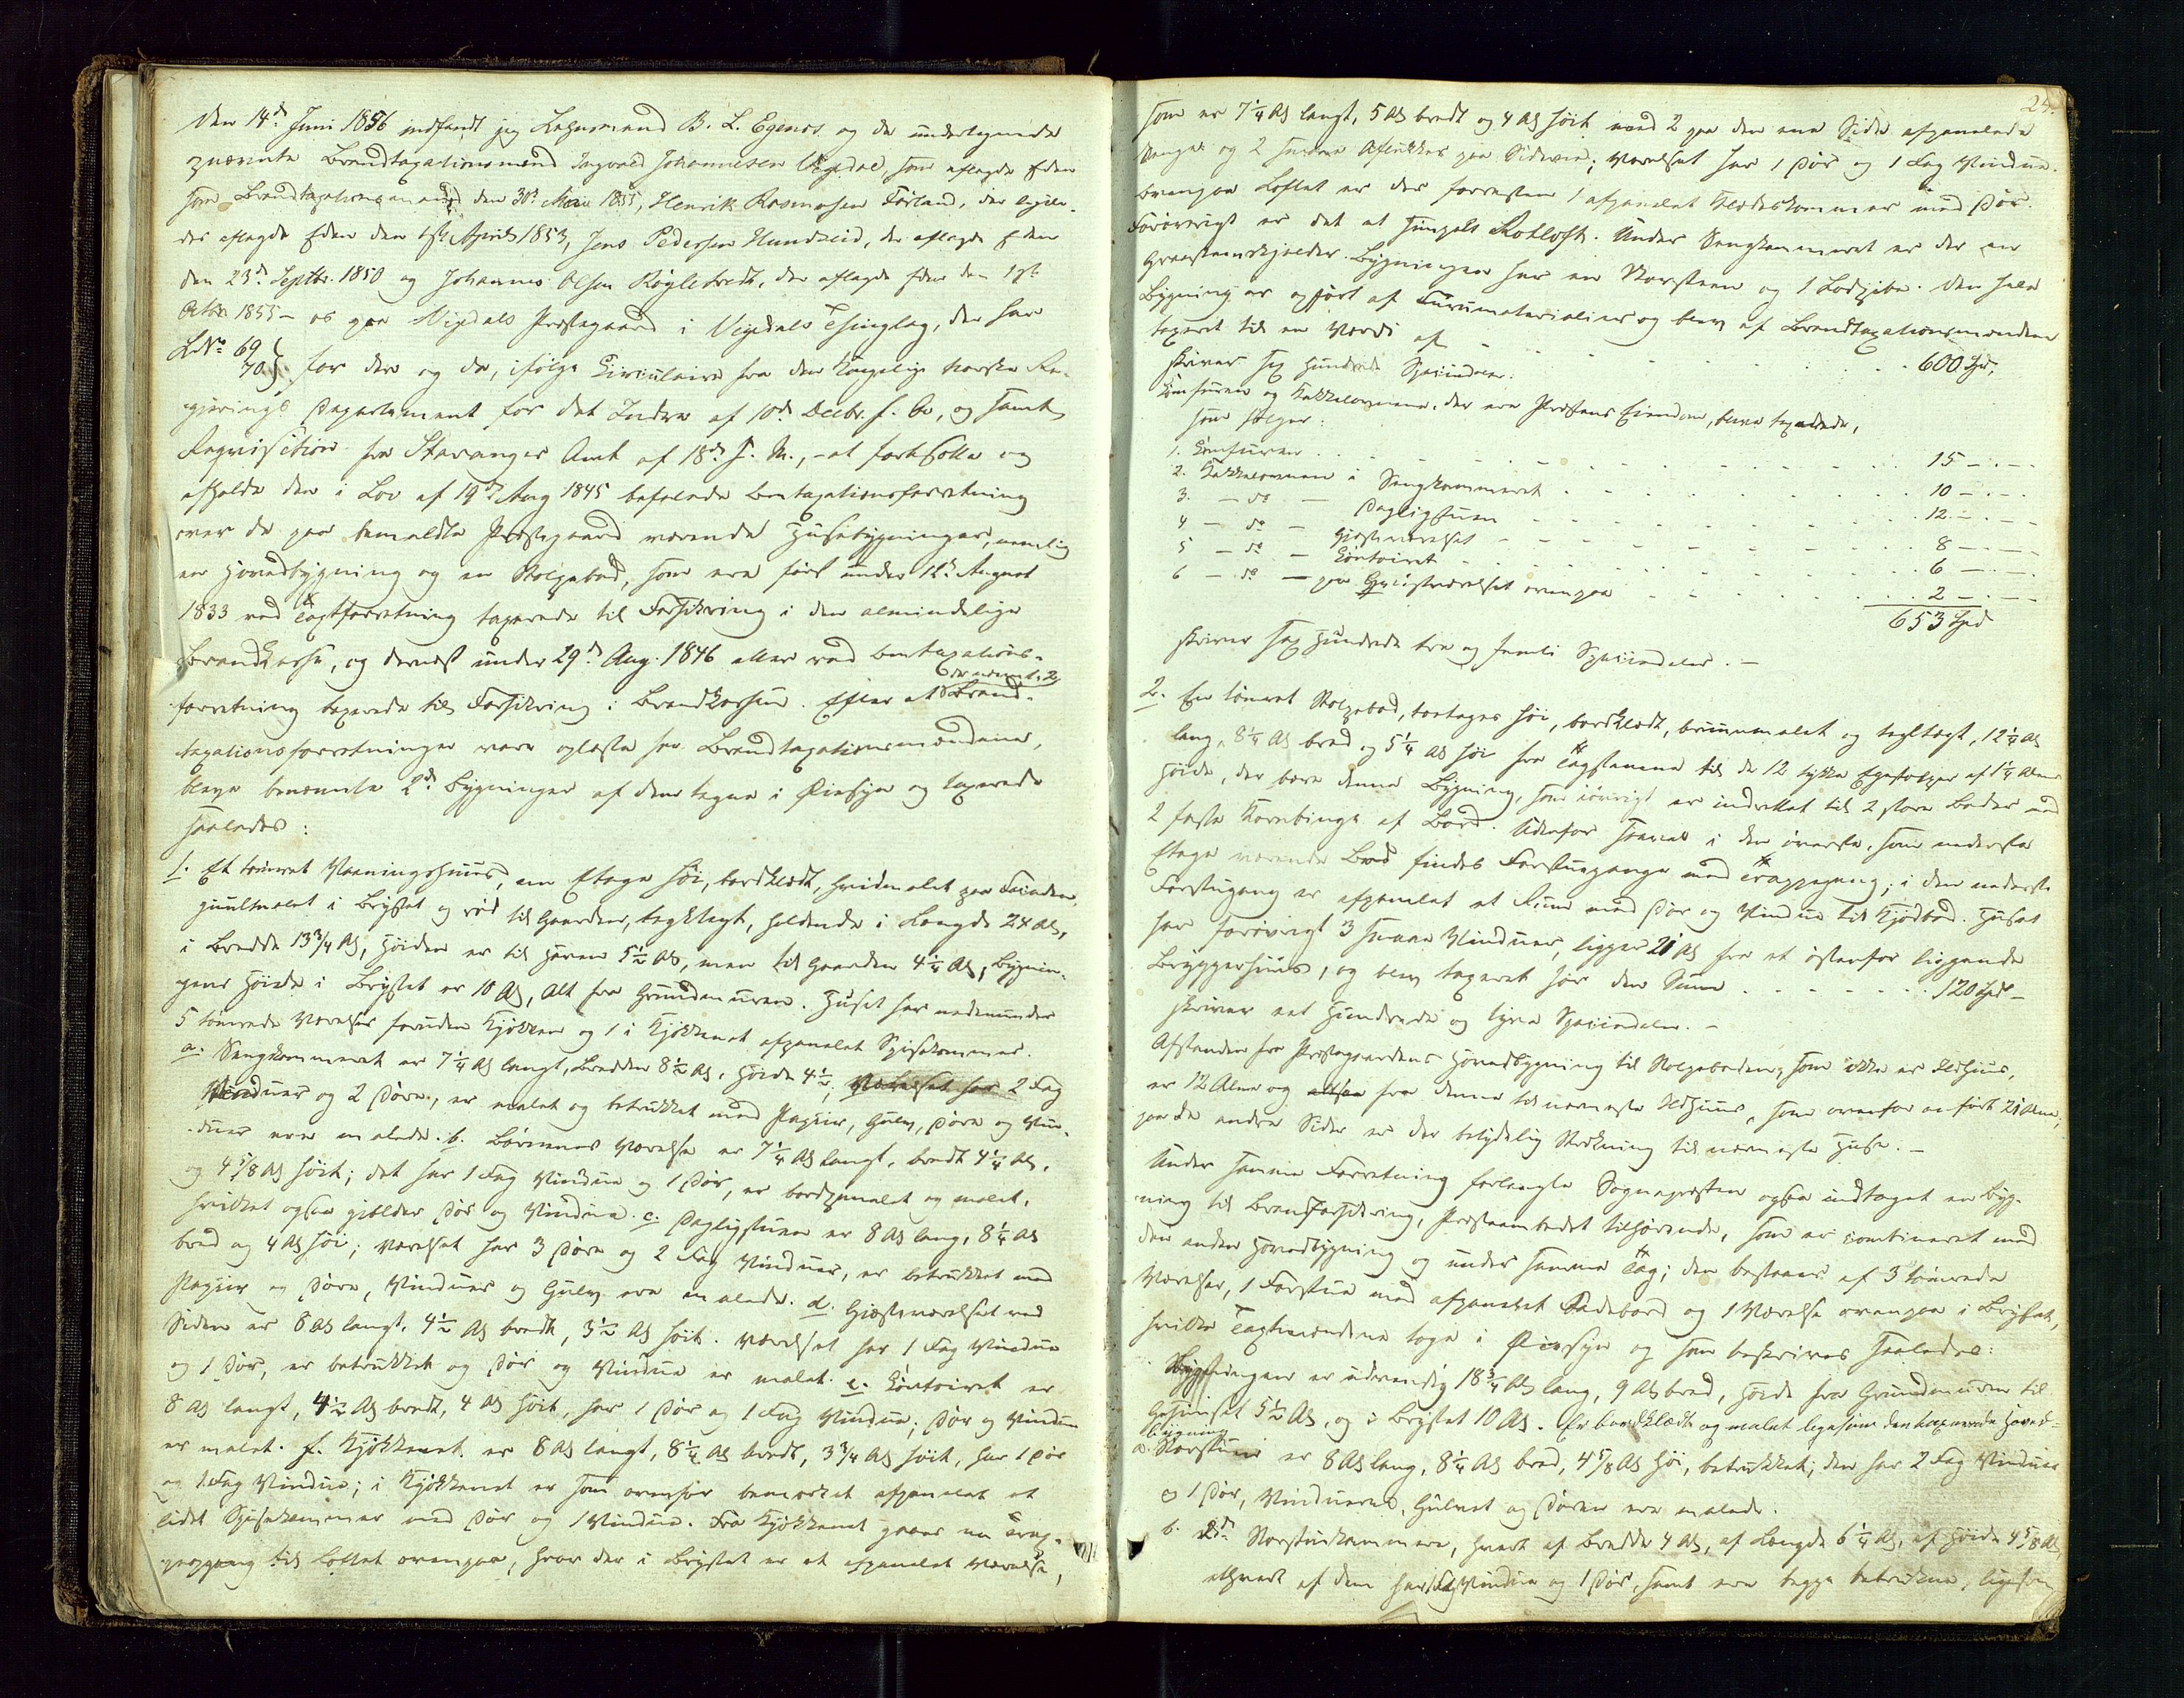 Den 14de Juni 1856 indfandt jeg Lehnsmand B. L. Egenes og de undertegnede
nævnte Brandtaxationsmænd Ingvald Johannesen Vigdal, som aflagde Eden
som Brandtaxationsmand den 30te Mai 1855, Henrik Rasmusen Førland, der lige-
des aflagde Eden den 1ste April 1853, Jens Pedersen Hundseid, der aflagde Eden
den 23de Septbr. 1850 og Johannes Olsen Røgletvedt, der aflagde Eden den 1ste
Octbr 1855 – os paa Vigdals Præstegaard i Vigdals Thinglag, der har
L.No 69
70 for der og da, ifølge Circulaire fra den Kongelige norske Re-
gjerings Departement for det Indre af 10de Decbr. f. A., og samt
Requisition fra Stavanger Amt af 18de f. M., – at fortsætte og
afholde den i Lov af 19de Aug 1845 befalede Omtaxationsforretning
over de paa bemeldte Præstegaard værende Huusebygninger, nemlig
en Hovedbygning og en Stolpebod, som ere først under 12te August
1833 ved Taxtforretning taxerede til Forsikring i den almindelige
Brandkasse, og dernæst under 29de Aug. 1846 atter ved Omtaxations-
forretning taxerede til Forsikring i Brandkassen. Efter at de nævnte 2 Brand-
taxationsforretninger vare oplæste for Brandtaxationsmændene,
bleve benævnte 2de Bygninger af dem tagne i Øiesyn og taxerede
saaledes:
1. Et tømret Vaaningshuus, en Etage høi, bordklædt, hvidmalet paa Fronten,
guulmalet i Brystet og rød til Gaarden, tegltægt, holdende i Længde 24 Al,
i Bredde 13¾ Al, Høiden er til Haven 5½ Al, men til Gaarden 4¼ Al, Bygnin-
gens Høide i Brystet er 10 Al, Alt fra Grundmuren. Huset har nedenunder
5 tømrede Værelser foruden Kjøkken og 1 i Kjøkkenet afpanelet Spisekammer.
a. Sengkammeret er 7¼ Al langt, Bredden 8½ Al, Høide 4½, Værelset har 2 Fag
Vinduer og 2 Døre, er malet og betrukket med Papiir, Gulv, Døre og Vin-
duer ere malede. b. Børnenes Værelse er 7¼ Al langt, bredt 4¼ Al,
og 4⅝ Al høit; det har 1 Fag Vindue og 1 Dør, er bordpanelet og malet,
hvilket ogsaa gjelder Dør og Vindue. c. Dagligstuen er 8 Al lang, 8¼ Al
bred og 4 Al høi; Værelset har 3 Døre og 2 Fag Vinduer, er betrukket med
Papiir og Døre, Vinduer og Gulv ere malede. d. Gjesteværelset ved
Siden er 8 Al langt, 4½ Al bredt, 3½ Al høit. Værelset har 1 Fag Vindue
og 1 Dør, er betrukket og Dør og Vindue er malet. e. Contoiret er
8 Al langt, 4½ Al bredt, 4 Al høit, har 1 Dør og 1 Fag Vindue; Dør og Vindue
er malet. f. Kjøkkenet er 8 Al langt, 8½ Al bredt, 3¾ Al høit, har 1 Dør
og 1 Fag Vindue; i Kjøkkenet er som ovenfor bemærket afpanelet et
lidet Spisekammer med Dør og 1 Vindue. Fra Kjøkkenet gaaer en Trap-
peopgang til Loftet ovenpaa, hvor der i Brystet er et afpanelet Værelse,
24.
som er 7¼ Al langt, 5 Al bredt og 4 Al høit med 2 paa den ene Side afpanelede
Senge og 2 smaae Aflukker paa Siderne; Værelset har 1 Dør og 1 Fag Vindue.
Ovenpaa Loftet er der forresten 1 afpanelet Klædekammer med Dør.
Forøvrigt er det et simpelt Rotloft. Under Sengkammeret er der en
Graasteenskjelder. Bygningen har en Skorsteen og 1 Lodpibe. Den hele
Bygning er opført af Furumaterialier og blev af Brandtaxationsmændene
taxeret til en Værdi af . . . . 600 Spd,
skriver sex Hundrede Speciedaler.
Comfuren og Kakkelovnene, der ere Præstens Eiendom, bleve taxerede,
som følger:
1. Comfuren . . . . 15 – . –
2. Kakkelovnen i Sengkammeret . . . . 10 – . –
3. – do – Dagligstuen . . . . 12 – . –
4 – do – Gjesteværelset . . . . 8 – . –
5 – do – Contoiret . . . . 6 – . –
6 – do – paa Gjesteværelset ovenpaa . . . . 2 – . –
653 Spd
skriver sex Hundrede tre og femti Speciedaler. –
2. En tømret Stolpebod, toetages høi, bordklædt, bruunmalet og tegltægt, 12¼ Al
lang, 8¼ Al bred og 5¼ Al høi fra Tagstenene til de 12 tykke Egestolper af 1¼ Alens
Høide, der bære denne Bygning, som iøvrigt er indrettet til 2 store Boder med
2 faste Kornbinge af Bord. Udenfor saavel i den øverste, som nederste
Etage værende Bod findes Forstuegange med Trappegang; i den nederste
Forstugang er afpanelet et Rum med Dør og Vindue til Kjødbod. Huset
har forøvrigt 3 smaae Vinduer, ligger 21 Al fra et østenfor liggende
Bryggerhuus, og blev taxeret for den Sum . . . . 120 Spd –
skriver eet Hundrede og tyve Speciedaler. –
Afstanden fra Præstegaardens Hovedbygning til Stolpeboden, som ikke er Ildhuus,
er 12 Alen og fra denne til nærmeste Ildhuus, som ovenfor anført 21 Alen,
paa de andre Sider er der betydelig Strækning til nærmeste Huse. –
Under samme Forretning forlangte Sognepræsten ogsaa indtaget en Byg-
ning til Brandforsikring, Præsteembedet tilhørende, som er combineret med
den anden Hovedbygning og under samme Tag; den bestaaer af 3 tømrede
Værelser, 1 Forstue med afpanelet Badebord og 1 Værelse ovenpaa i Brystet,
hvilke Taxtmændene toge i Øiesyn og som beskrives saaledes:
Bygningen er udvendig 18¾ Al lang, 9 Al bred, Høide fra Grundmuren til
Gesimset 5½ Al, og i Brystet 10 Al. Er bordklædt og malet ligesom den taxerede Hoved-
bygning
a. Storstuen er 8 Al lang, 8¼ Al bred, 4⅝ Al høi, betrukket; den har 2 Fag Vinduer
og 1 Dør, Vinduerne, Gulvet og Døren ere malede.
b. 2de Storstuekammere, hvert af Bredde 4 Al, af Længde 6¼ Al, af Høide 4⅝ Al,
ethvert af dem har 1 Fag Vindue og 1 Dør, samt ere begge betrukne, ligesom